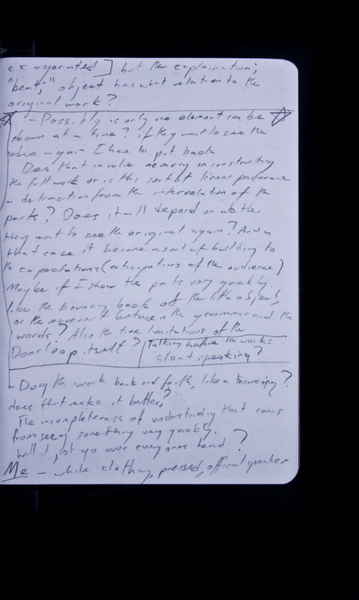 exagerated] but the explaination;
"beat," object has what relation to the
original work?
- Possibly is only one element can be
shown at a time? if they want to see the
video again I have to put back
Does that involve memory in constructing
the full work or is this sort of linear performance
a detraction from the interrelation of the
parts? Does it all depend on whether
they want to see the original again? As in
that case it becomes a sort of building to
the expectations (anticipations of the audience)
Maybe if I show the parts very quickly,
like the bouncing back of the little object,
or the movement between the grammar and the
words? Also the time limitations of the
Door loop itself? Talking before the works
silent speaking?
- Doing the work back and forth, like a bouncing?
does that make it better?
The incompleteness of understanding that comes
from seeing something very quickly.
Will it just go over everyones head?
Me - white clothing, pressed, official speaker